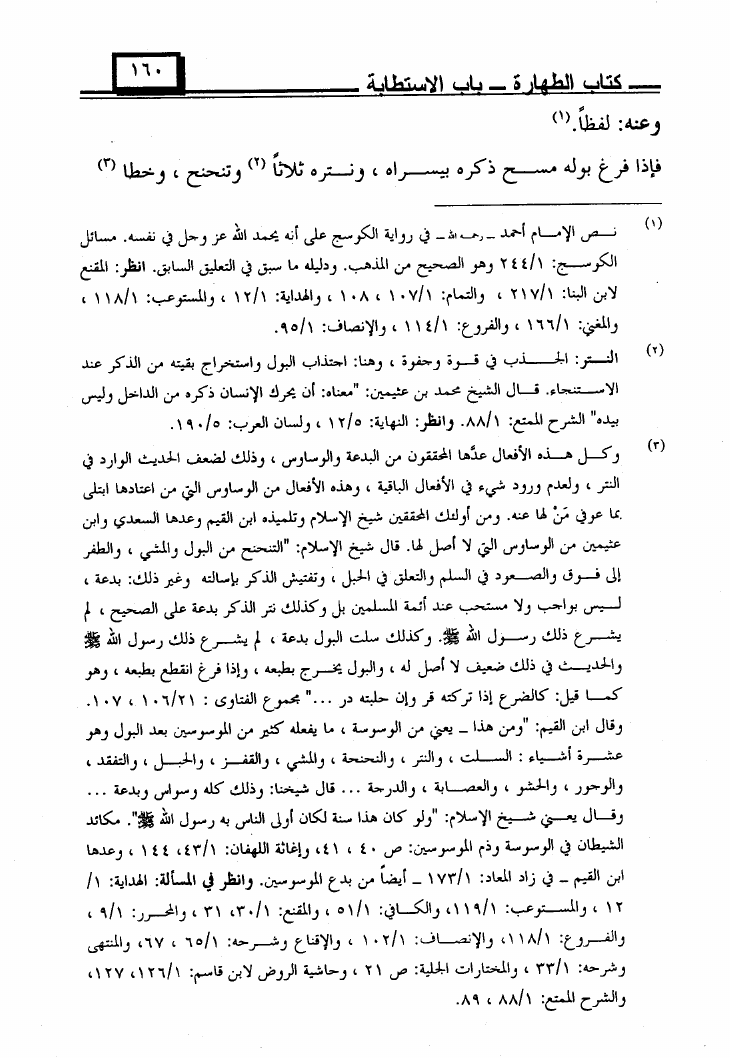 ١٦٠
كتاب الطهارة ـ باب الاستطابة
وعنه: لفظاً.(١)
فإذا فرغ بوله مسح ذكره بيسراه ، ونتره ثلاثاً (٢) وتنحنح ، وخطا (٣)
(١) نص الإمام أحمد ـ رحمه الله ـ في رواية الكوسج على أنه يحمد الله عز وجل في نفسه. مسائل
الكوسج: ٢٤٤/١ وهو الصحيح من المذهب. ودليله ما سبق في التعليق السابق. انظر: المقنع
لابن البنا: ٢١٧/١ ، والتمام: ١٠٧/١ ، ١٠٨ ، والهداية: ١٢/١ ، والمستوعب: ١١٨/١ ،
والمغني: ١٦٦/١ ، والفروع: ١١٤/١ ، والإنصاف: ٩٥/١.
(٢) النتر: الجذب في قوة وجفوة ، وهنا: اجتذاب البول واستخراج بقيته من الذكر عند
الاستنجاء. قال الشيخ محمد بن عثيمين: "معناه: أن يحرك الإنسان ذكره من الداخل وليس
بيده" الشرح الممتع: ٨٨/١. وانظر: النهاية: ١٢/٥ ، ولسان العرب: ١٩٠/٥.
(٣) وكل هذه الأفعال عدَّها المحققون من البدعة والوساوس ، وذلك لضعف الحديث الوارد في
النتر ، ولعدم ورود شيء في الأفعال الباقية ، وهذه الأفعال من الوساوس التي من اعتادها ابتلى
بما عوفي مَنْ لها عنه. ومن أولئك المحققين شيخ الإسلام وتلميذه ابن القيم وعدها السعدي وابن
عثيمين من الوساوس التي لا أصل لها. قال شيخ الإسلام: "التنحنح من البول والمشي ، والطفر
إلى فوق والصعود في السلم والتعلق في الحبل ، وتفتيش الذكر بإسالته وغير ذلك: بدعة ،
ليس بواجب ولا مستحب عند أئمة المسلمين بل وكذلك نتر الذكر بدعة على الصحيح ، لم
يشرع ذلك رسول الله ﷺ. وكذلك سلت البول بدعة ، لم يشرع ذلك رسول الله ﷺ
والحديث في ذلك ضعيف لا أصل له ، والبول يخرج بطبعه ، وإذا فرغ انقطع بطبعه ، وهو
كما قيل: كالضرع إذا تركته قر وإن حلبته در ..." مجموع الفتاوى : ١٠٦/٢١ ، ١٠٧.
وقال ابن القيم: "ومن هذا ـ يعني من الوسوسة ، ما يفعله كثير من الموسوسين بعد البول وهو
عشرة أشياء : السلت ، والنتر ، والنحنحة ، والمشي ، والقفز ، والحبل ، والتفقد ،
والوجور ، والحشو ، والعصابة ، والدرجة ... قال شيخنا: وذلك كله وسواس وبدعة ...
وقال يعني شيخ الإسلام: "ولو كان هذا سنة لكان أولى الناس به رسول الله ﷺ". مكائد
الشيطان في الوسوسة وذم الموسوسين: ص ٤٠ ، ٤١، وإغاثة اللهفان: ٤٣/١، ١٤٤ ، وعدها
ابن القيم ـ في زاد المعاد: ١٧٣/١ ـ أيضاً من بدع الموسوسين. وانظر في المسألة: الهداية: ١/
١٢ ، والمستوعب: ١١٩/١، والكافي: ٥١/١ ، والمقنع: ٣٠/١، ٣١ ، والمحرر: ٩/١ ،
والفروع: ١١٨/١، والإنصاف: ١٠٢/١ ، والإقناع وشرحه: ٦٥/١ ، ٦٧، والمنتهى
وشرحه: ٣٣/١ ، والمختارات الجلية: ص ٢١ ، وحاشية الروض لابن قاسم: ١٢٦/١، ١٢٧،
والشرح الممتع: ٨٨/١ ، ٨٩.